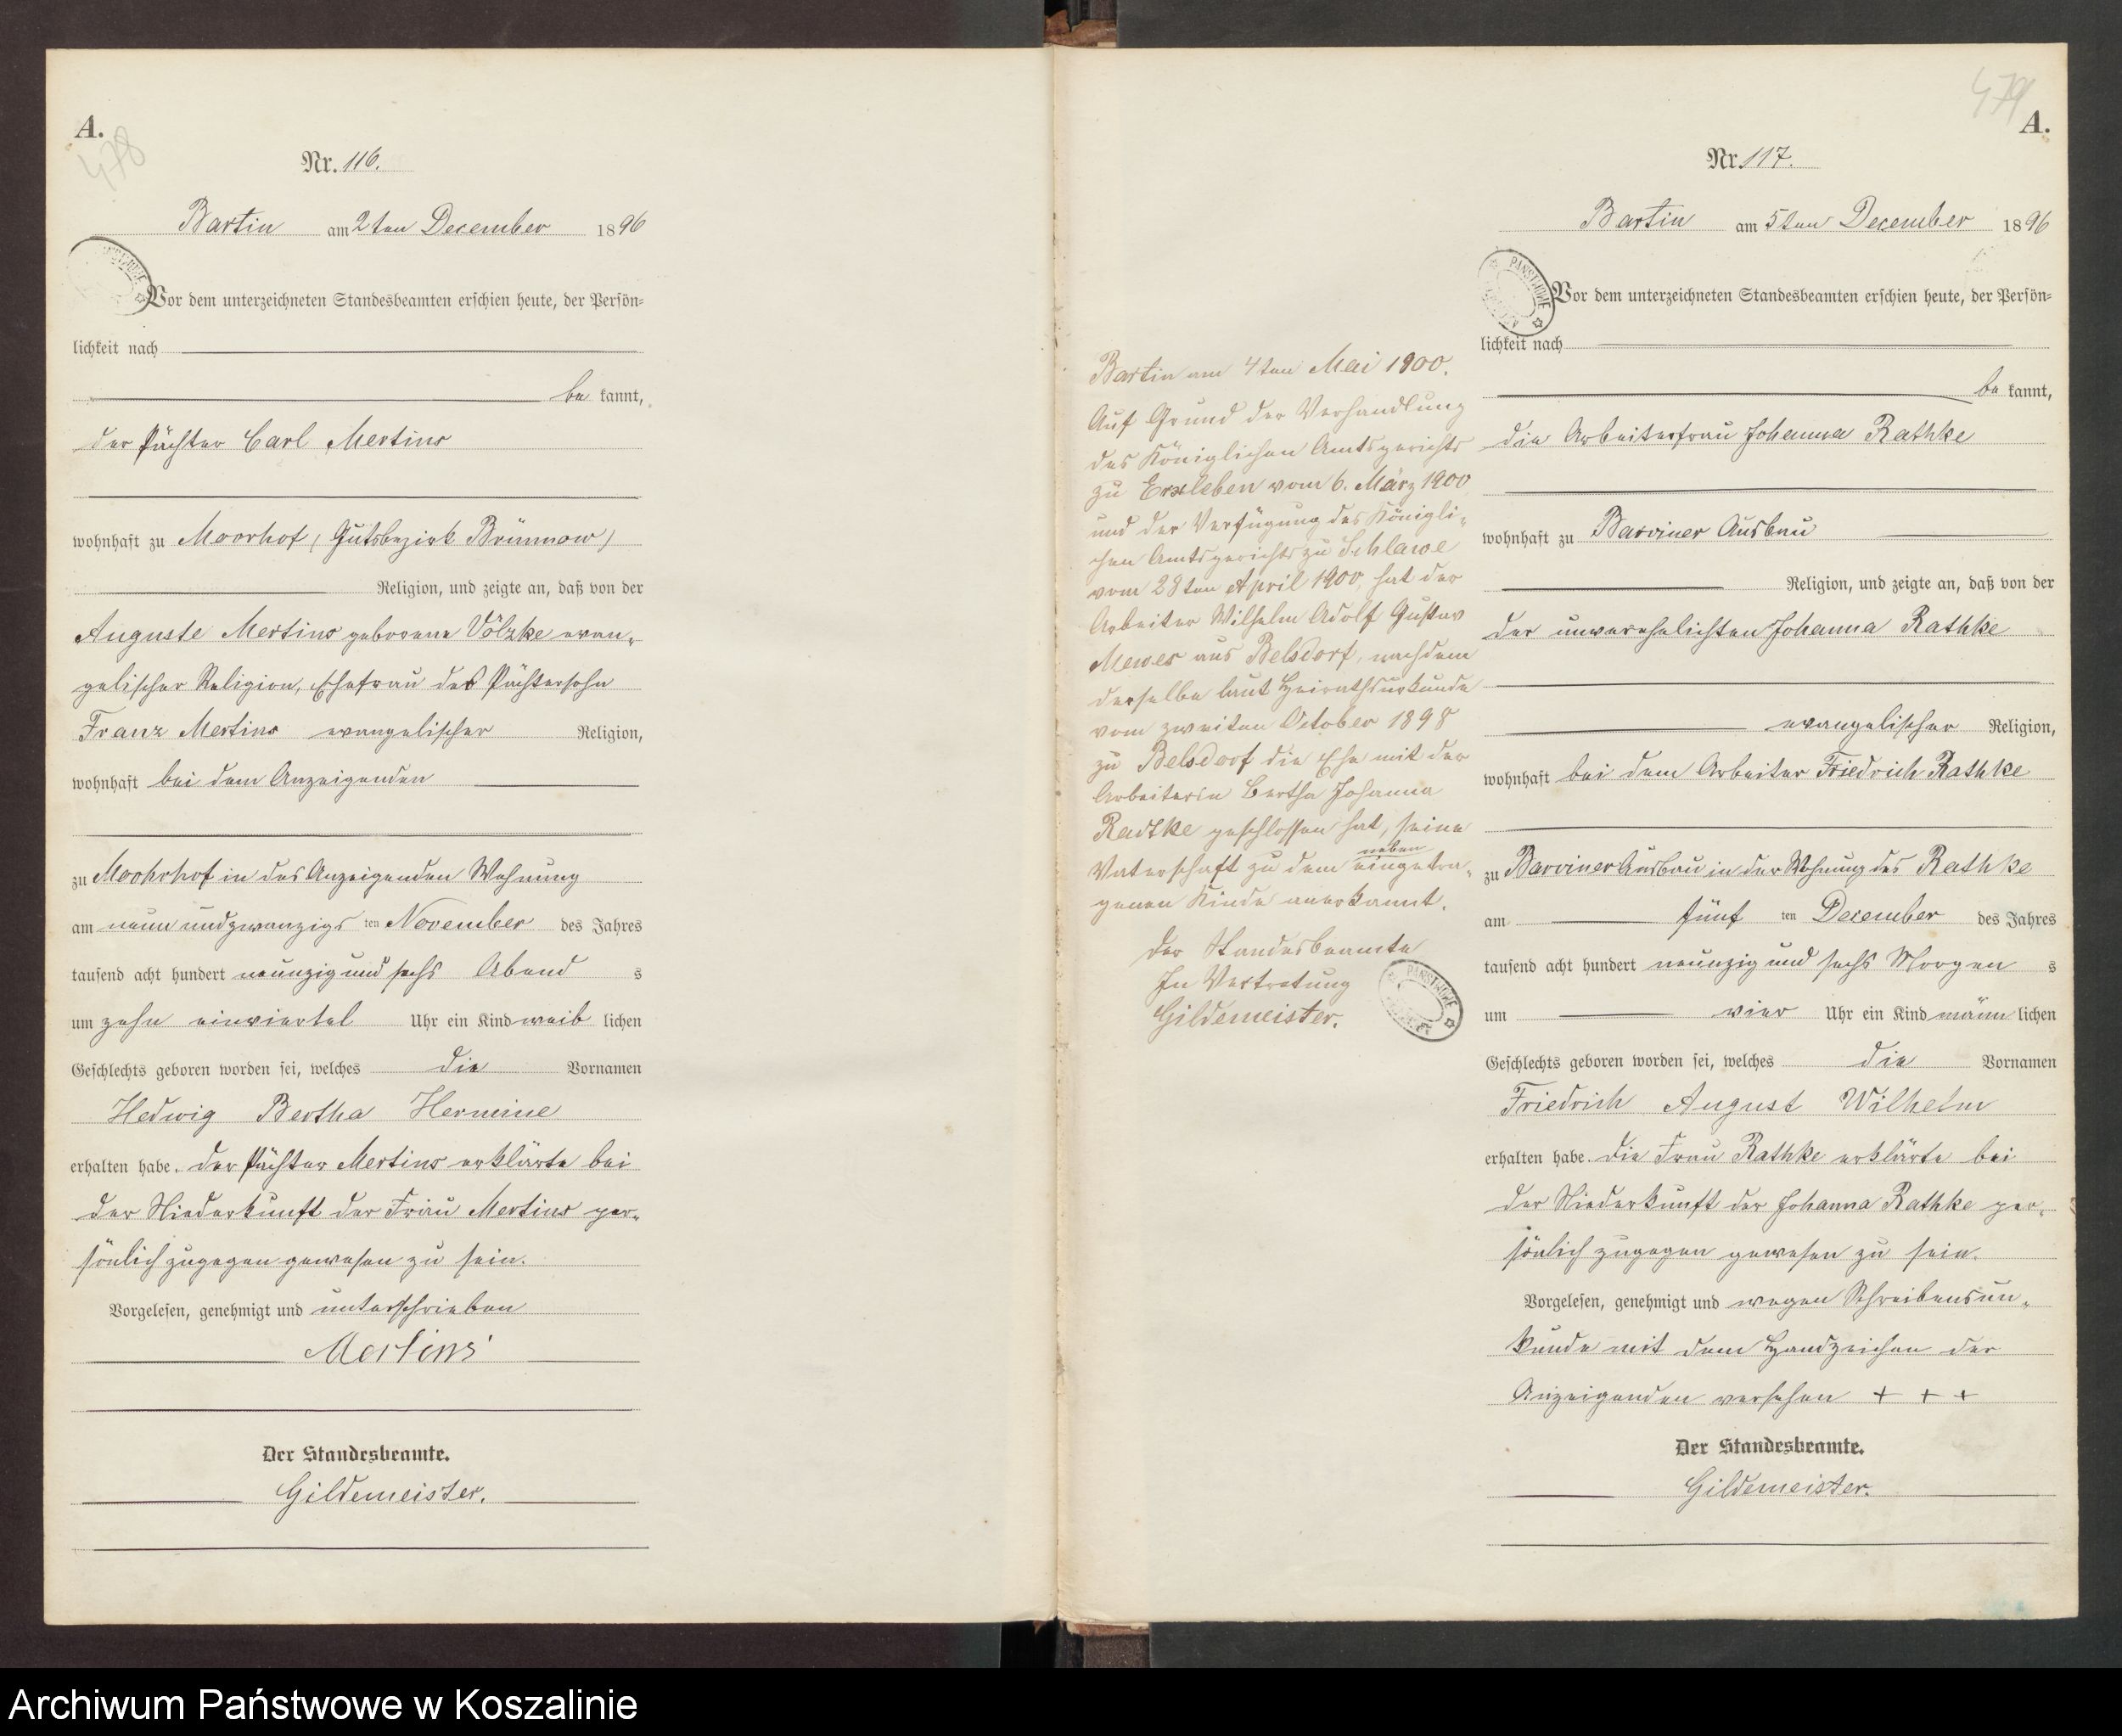 A.
478
Nr. 116.
Bartin am 2ten December 1896
Vor dem unterzeichneten Standesbeamten erschien heute, der Persön=
lichkeit nach
be kannt,
der Pächter Carl Mertins
wohnhaft zu Moorhof (Gutsbezirk Brünnow)
Religion, und zeigte an, daß von der
Auguste Mertins geborene Völzke evan-
gelischer Religion, Ehefrau des Pächtersohn
Franz Mertins evangelischer Religion,
wohnhaft bei dem Anzeigenden
zu Moohrhof in des Anzeigenden Wohnung
am neun und zwanzigs ten November des Jahres
tausend acht hundert neunzig und sechs Abend s
um zehn einviertel Uhr ein Kind weib lichen
Geschlechts geboren worden sei, welches die Vornamen
Hedwig Bertha Hermine
erhalten habe. Der Pächter Mertins erklärte bei
der Niederkunft der Frau Mertins per-
sönlich zugegen gewesen zu sein.
Vorgelesen, genehmigt und unterschrieben
Mertins
Der Standesbeamte.
Gildemeister.
Bartin am 4ten Mai 1900.
Auf Grund der Verhandlung
des Königlichen Amtsgerichts
zu Erxleben vom 6. März 1900
und der Verfügung des Königli-
chen Amtsgerichts zu Schlawe
vom 28ten April 1900, hat der
Arbeiter Wilhelm Adolf Gustav
Mewes aus Belsdorf, nachdem
derselbe laut Heirathsurkunde
vom zweiten October 1898
zu Belsdorf die Ehe mit der
Arbeiterin Bertha Johanna
Radtke geschlossen hat, seine
neben
Vaterschaft zu dem eingetra-
genen Kinde anerkannt.
Der Standesbeamte
In Vertretung
Gildemeister.
PANSTWOWE
479
A.
Nr. 117.
Bartin am 5ten December 1896
PANSTWOWE
Vor dem unterzeichneten Standesbeamten erschien heute, der Persön=
lichkeit nach
be kannt,
die Arbeiterfrau Johanna Rathke
wohnhaft zu Barviner Ausbau
Religion, und zeigte an, daß von der
der unverehelichten Johanna Rathke
evangelischer Religion,
wohnhaft bei dem Arbeiter Friedrich Rathke
zu Barviner Ausbau in der Wohnung des Rathke
am fünf ten December des Jahres
tausend acht hundert neunzig und sechs Morgen s
um vier Uhr ein Kind männ lichen
Geschlechts geboren worden sei, welches die Vornamen
Friedrich August Wilhelm
erhalten habe. Die Frau Rathke erklärte bei
der Niederkunft der Johanna Rathke per-
sönlich zugegen gewesen zu sein.
Vorgelesen, genehmigt und wegen Schreibensun-
kunde mit dem Handzeichen der
Anzeigenden versehen + + +
Der Standesbeamte.
Gildemeister.
Archiwum Państwowe w Koszalinie